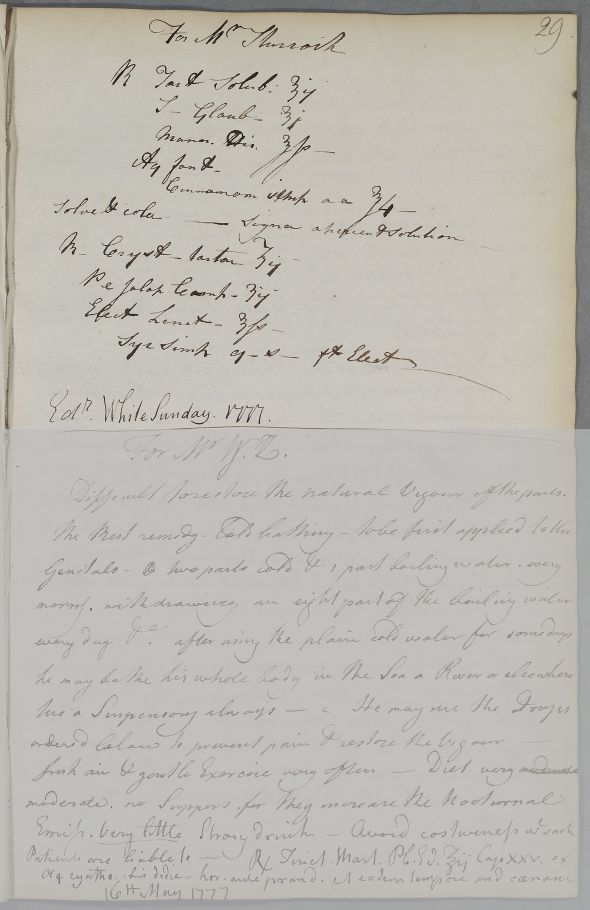 29
For Mr
R Tart Solub: ʒij
S- Glaub- ʒj
Manna. ℥ß-
Aq font-
Cinnamom simp a a ℥4-
Solve & cola - Signa aperient solution
R- Cryst- tartar ʒij
Pe Jalap Comp- ʒij
Elect Lenit- ℥ß-
Syr Simp q-s- ft Elect
Edr. White Sunday. 1777.
For Mr W.
Difficult to restore the natural Vigour of the parts.
The Best remidy- Cold bathing- to be first applied to the
Genitals- two parts cold & 1 part boiling water. every
morng. withdrawing an eight part of the boiling water
every day &c. after using the plain cold water for some days
he may bathe his whole body in the Sea a River or elsewhere
Use a Suspensory always - He may use the Drops
ordered below to prevent pain & restore the Vigour -
fresh air & gentle Exercise very often - Diet very
moderate. no Suppers. for they increase the Nocturnal
Emiss. Very little Strong drink - Avoid costiveness wc. such
Patients are liable to - Rx Tinct. Mart. Ph. Ed. ʒij Cap. XXV. ex
Aq. cyatho. bis die - hor. ante prand. et eodem tempore ante cœnam
16th May 1777